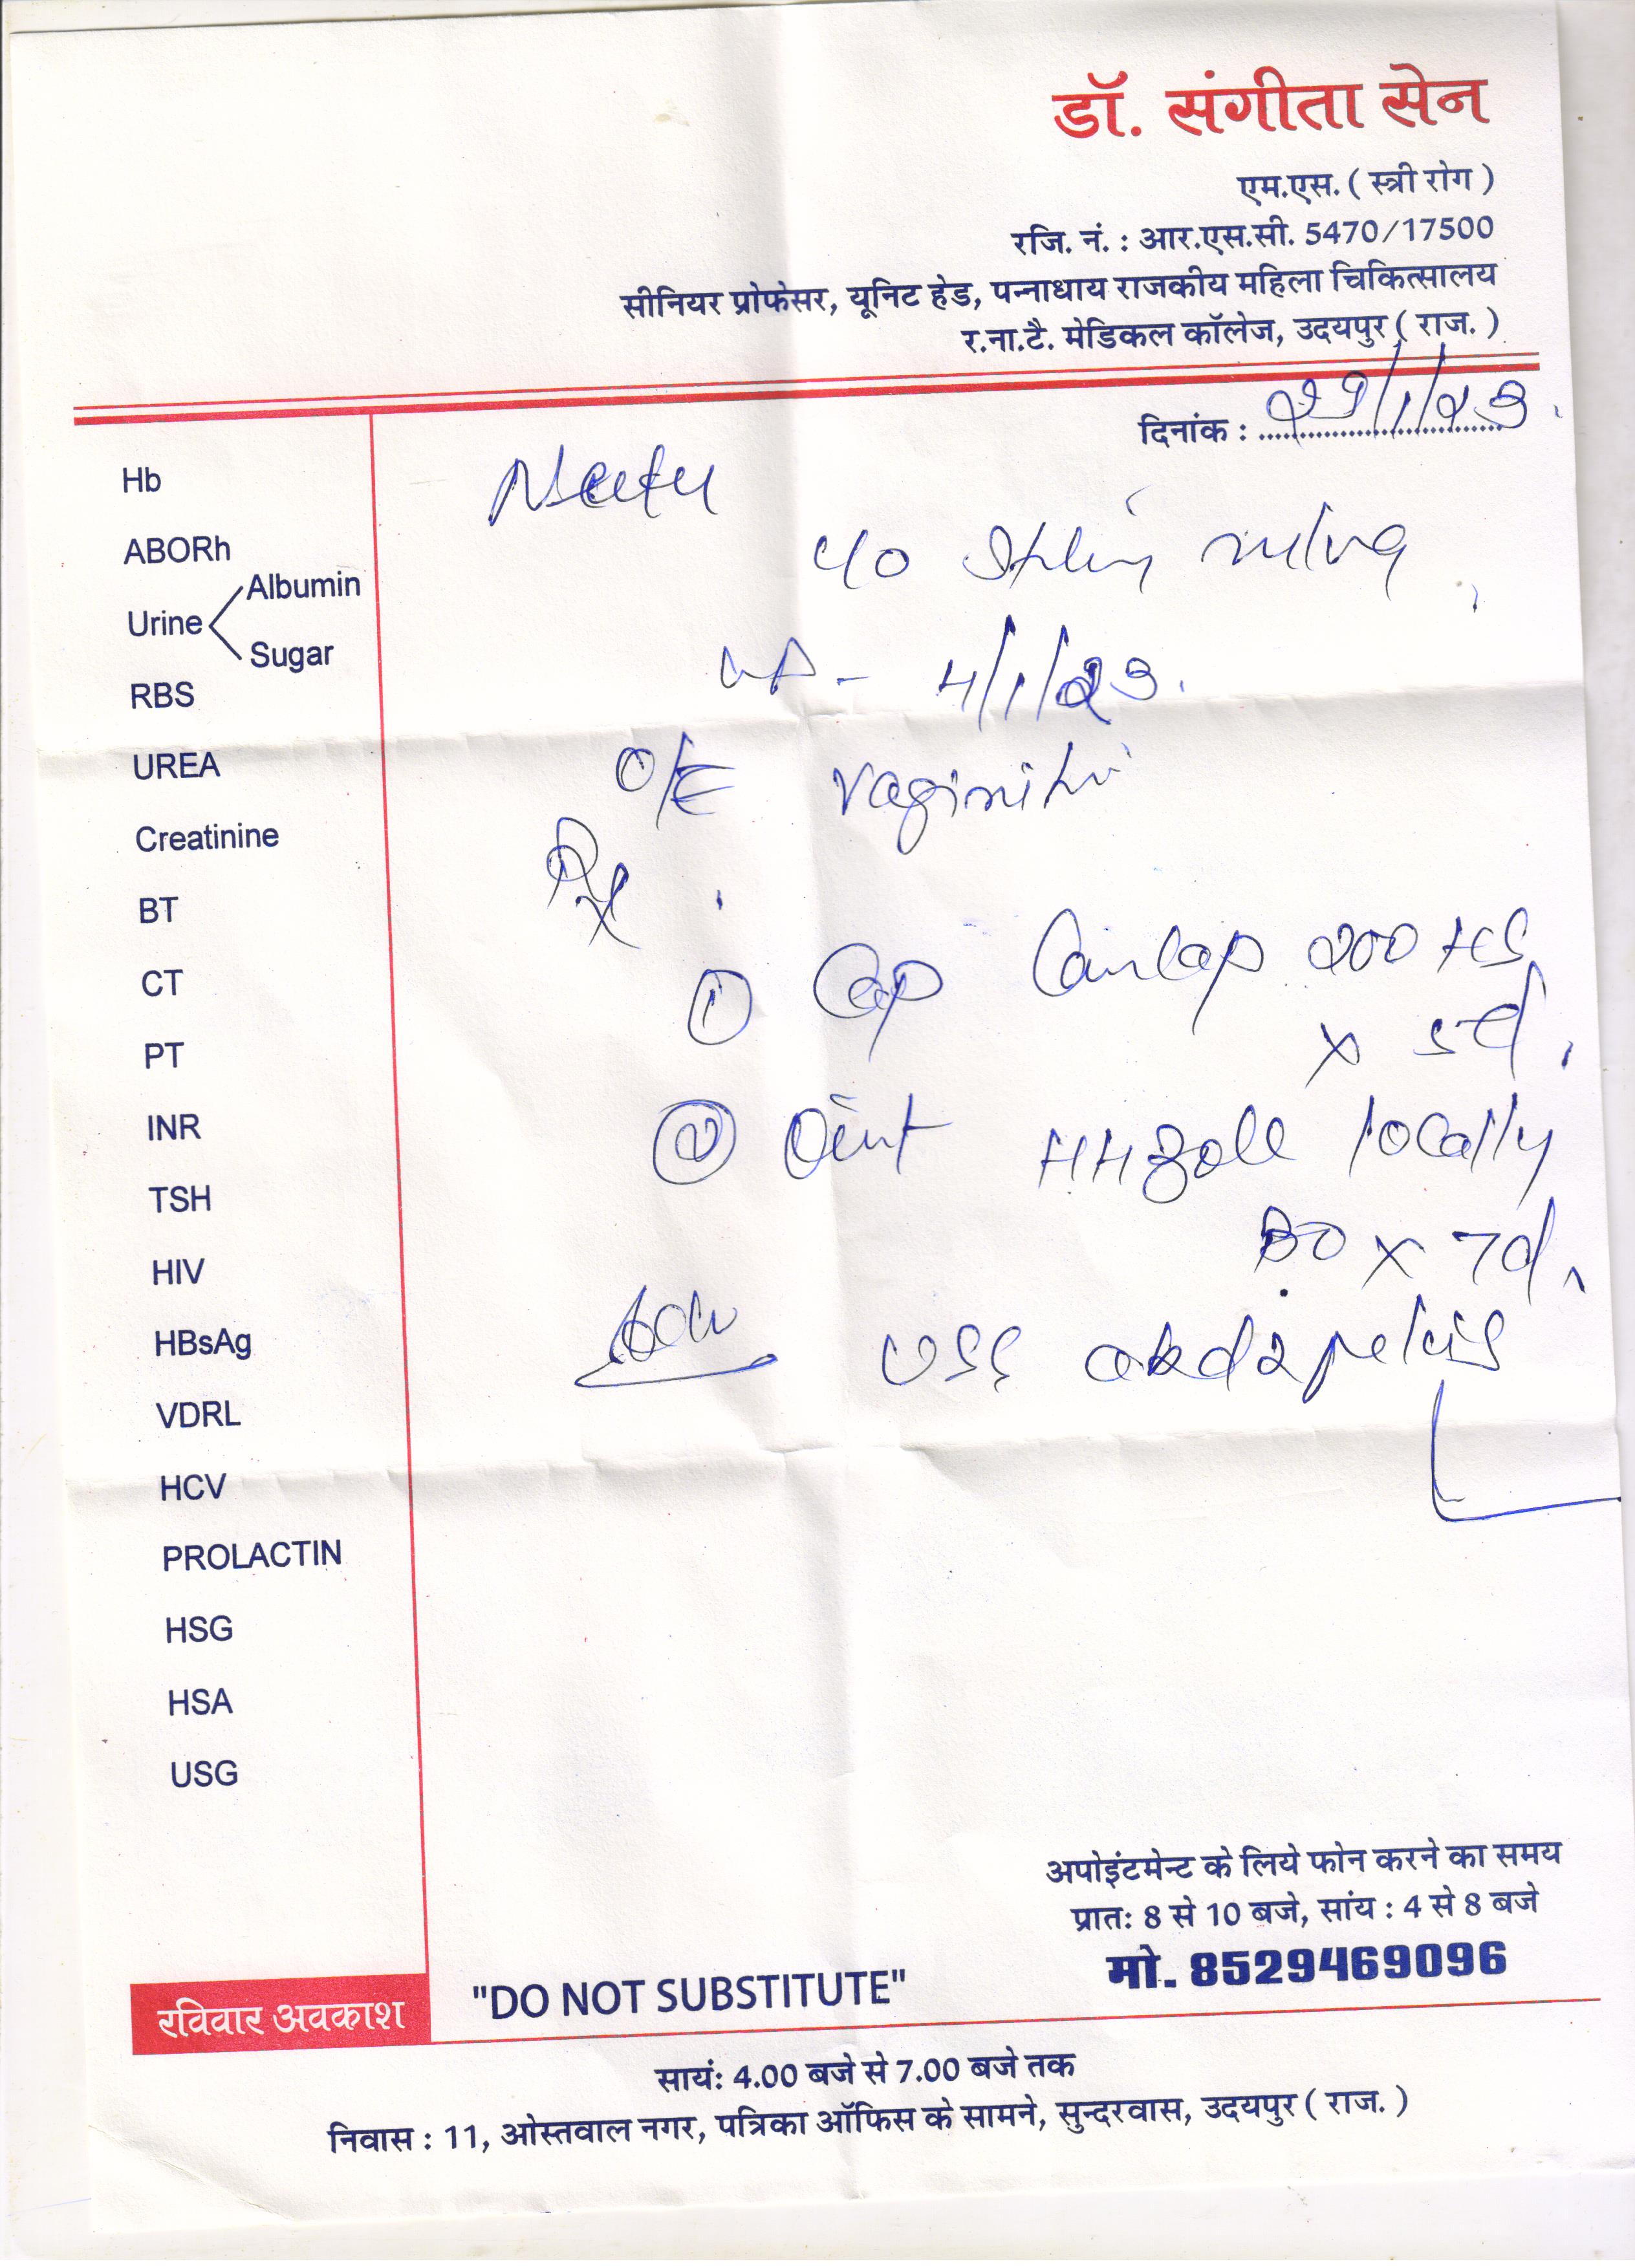 डॉ. संगीता सेन
एम.एस. ( स्त्री रोग )
रजि. नं. : आर.एस.सी. 5470/17500
सीनियर प्रोफेसर, यूनिट हेड, पन्नाधाय राजकीय महिला चिकित्सालय
र.ना.टै. मेडिकल कॉलेज, उदयपुर ( राज. )
दिनांक : /1/23
Neetu
c/o
- 4/1/23.
O/E vaginitis
Rx
① Cap 200 HS
x 5d.
② Oint HHzole locally
BD x 7d.
Adv USG abd & pelvis
Hb
ABORh
Urine Albumin
Sugar
RBS
UREA
Creatinine
BT
CT
PT
INR
TSH
HIV
HBsAg
VDRL
HCV
PROLACTIN
HSG
HSA
USG
अपोइंटमेन्ट के लिये फोन करने का समय
प्रातः 8 से 10 बजे, सांय : 4 से 8 बजे
मो. 8529469096
रविवार अवकाश
"DO NOT SUBSTITUTE"
सायं: 4.00 बजे से 7.00 बजे तक
निवास : 11, ओस्तवाल नगर, पत्रिका ऑफिस के सामने, सुन्दरवास, उदयपुर ( राज. )